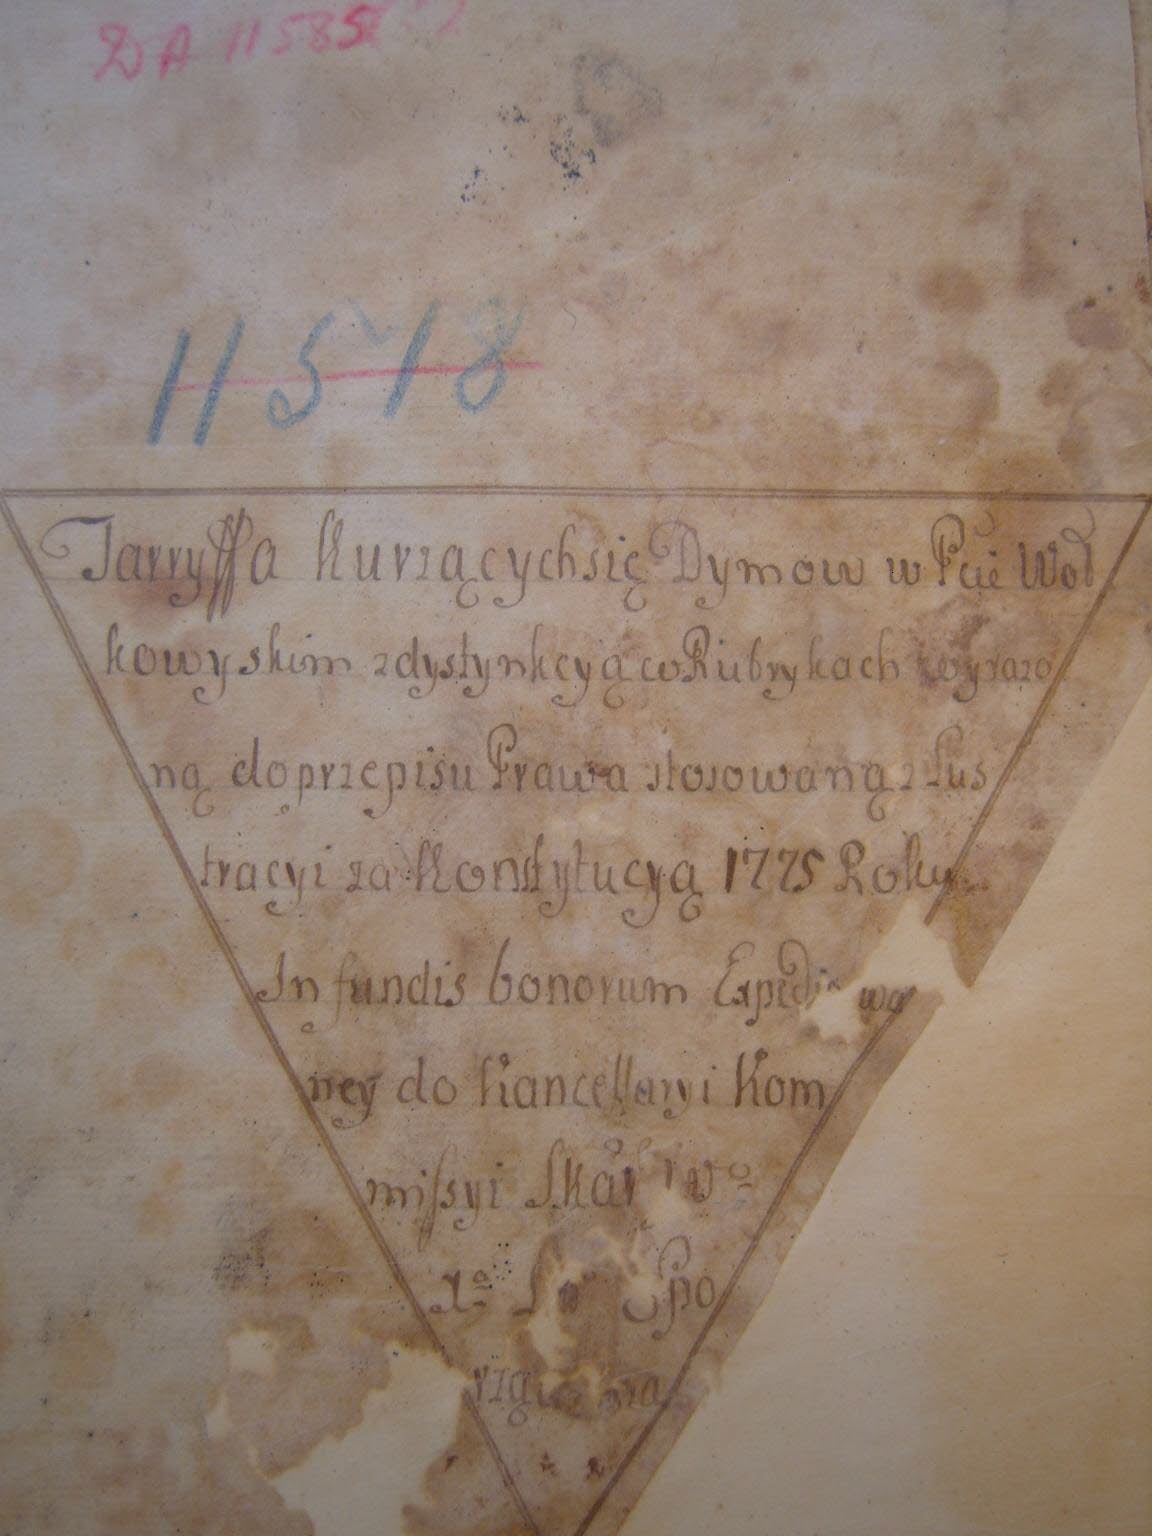 DA 11585
11578
Tarryffa Kurzących się Dymow w Pcie Woł
kowyskim z dystynkcyą w Rubrykach wyrazo
ną do przepisu Prawa stosowaną z Lus
tracyi za Konstytucyą 1775 Roku
In fundis bonorum
ney do Kancellaryi Kom
missyi
Xa